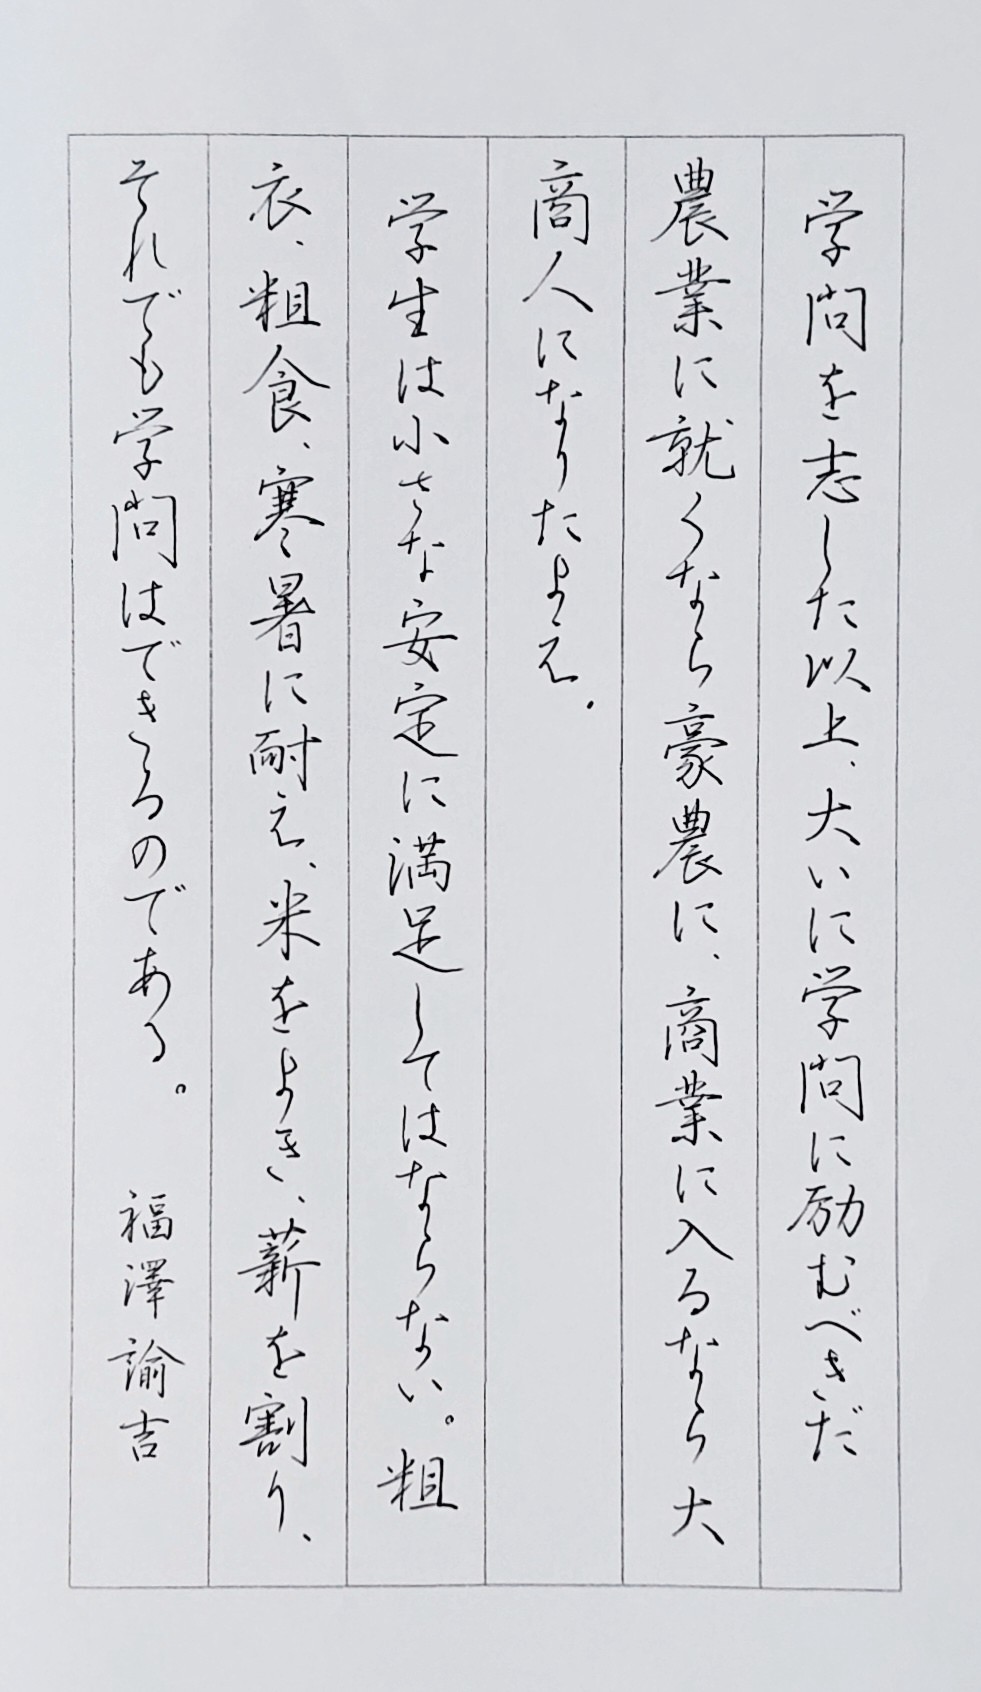 学問を志した以上、大いに学問に励むべきだ
農業に就くなら豪農に、商業に入るなら大
商人になりたまえ。
学生は小さな安定に満足してはならない。粗
衣、粗食、寒暑に耐え、米をよき、薪を割り、
それでも学問はできるのである。 福澤諭吉